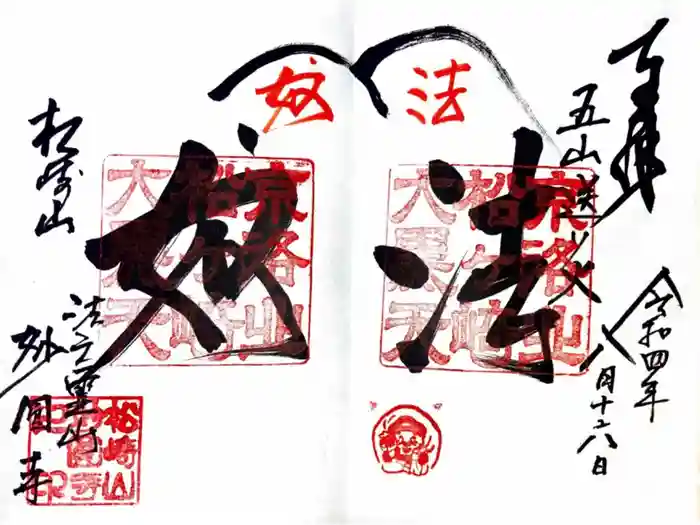 奉拝
五山送り火
令和四年
八月十六日
法
法
京洛北
松ヶ崎
大黒天
妙
妙
京洛北
松ヶ崎
大黒天
松崎山
妙圓寺
松崎山